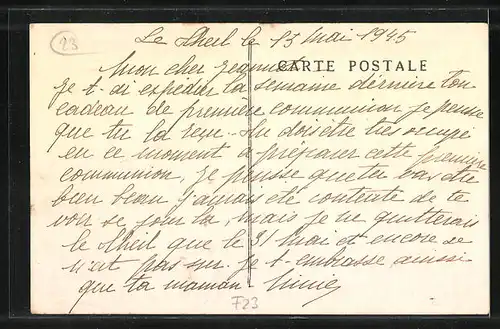 23
Le Theil le 13 Mai 1945
CARTE POSTALE
Mon cher
je t-ai expédier la semaine dernière ton
cadeau de première communion je pense
que tu la reçu. tu dois être très occupé
en ce moment a préparer cette première
communion, je pense que tu vas être
bien beau j'aurais été contente de te
voir se jour la, mais je ne quitterais
le Theil que le 31 Mai et encore se
n'est pas sur. je t-embrasse ainsi
que ta maman
F23